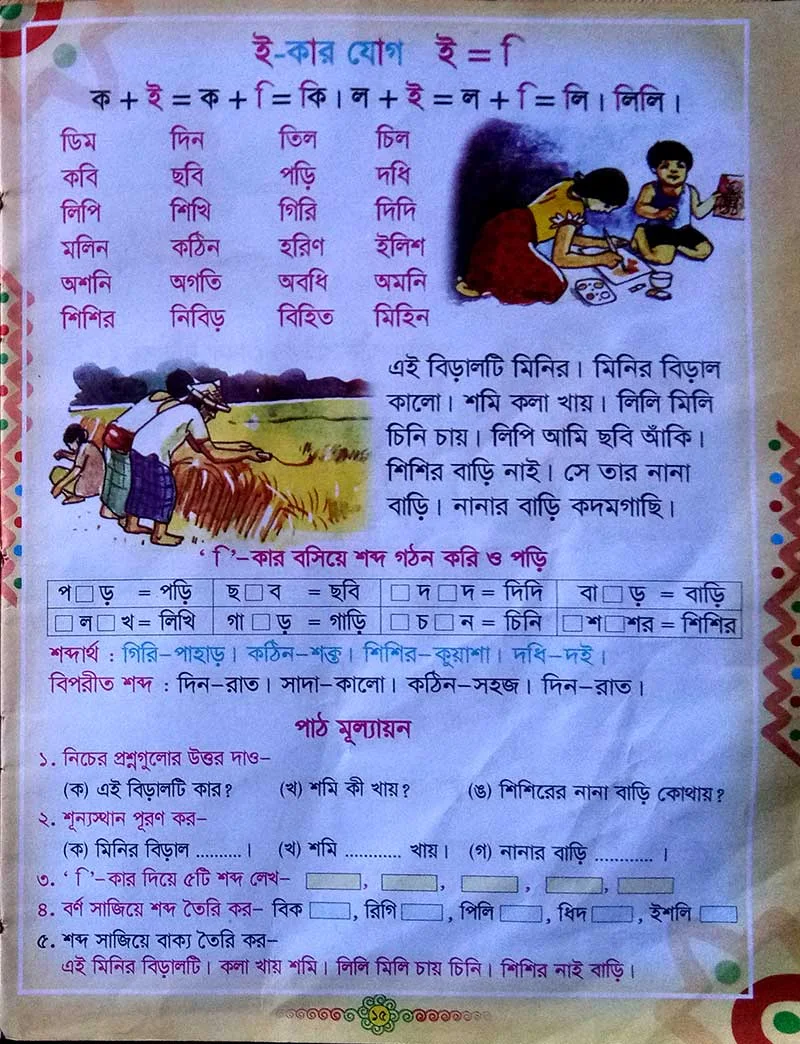 ই-কার যোগ ই = ি
ক + ই = ক + ি = কি। ল + ই = ল + ি = লি। লিলি।
ডিম দিন তিল চিল
কবি ছবি পড়ি দধি
লিপি শিখি গিরি দিদি
মলিন কঠিন হরিণ ইলিশ
অশনি অগতি অবধি অমনি
শিশির নিবিড় বিহিত মিহিন
এই বিড়ালটি মিনির। মিনির বিড়াল
কালো। শমি কলা খায়। লিলি মিলি
চিনি চায়। লিপি আমি ছবি আঁকি।
শিশির বাড়ি নাই। সে তার নানা
বাড়ি। নানার বাড়ি কদমগাছি।
‘ ি’-কার বসিয়ে শব্দ গঠন করি ও পড়ি
প□ড় = পড়ি ছ□ব = ছবি □দ□দ = দিদি বা□ড় = বাড়ি
□ল□খ = লিখি গা□ড় = গাড়ি □চ□ন = চিনি □শ□শর = শিশির
শব্দার্থ : গিরি-পাহাড়। কঠিন-শক্ত। শিশির-কুয়াশা। দধি-দই।
বিপরীত শব্দ : দিন-রাত। সাদা-কালো। কঠিন-সহজ। দিন-রাত।
পাঠ মূল্যায়ন
১. নিচের প্রশ্নগুলোর উত্তর দাও-
(ক) এই বিড়ালটি কার? (খ) শমি কী খায়? (ঙ) শিশিরের নানা বাড়ি কোথায়?
২. শূন্যস্থান পূরণ কর-
(ক) মিনির বিড়াল ..........। (খ) শমি ............ খায়। (গ) নানার বাড়ি ............ ।
৩. ‘ ি’-কার দিয়ে ৫টি শব্দ লেখ- □, □, □, □, □
৪. বর্ণ সাজিয়ে শব্দ তৈরি কর- বিক □, রিগি □, পিলি □, ধিদ □, ইশলি □
৫. শব্দ সাজিয়ে বাক্য তৈরি কর-
এই মিনির বিড়ালটি। কলা খায় শমি। লিলি মিলি চায় চিনি। শিশির নাই বাড়ি।
১৫